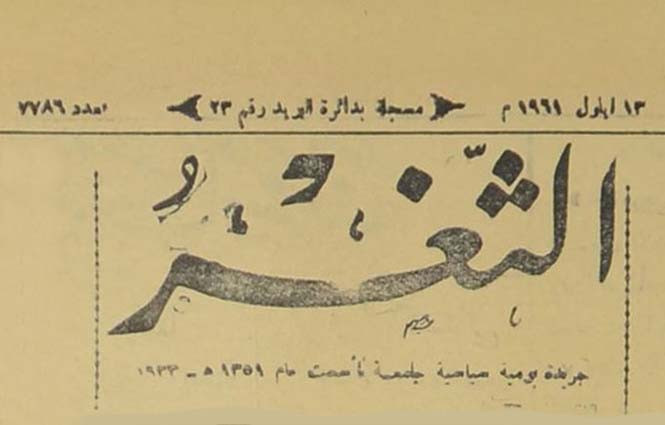 ١٣ ايلول ١٩٦١ م مسجلة بدائرة البريد رقم ٢٣ العدد ٧٧٨٦
الثَّغْرُ
جريدة يومية سياسية جامعة تأسست عام ١٣٥١ ه - ١٩٣٣